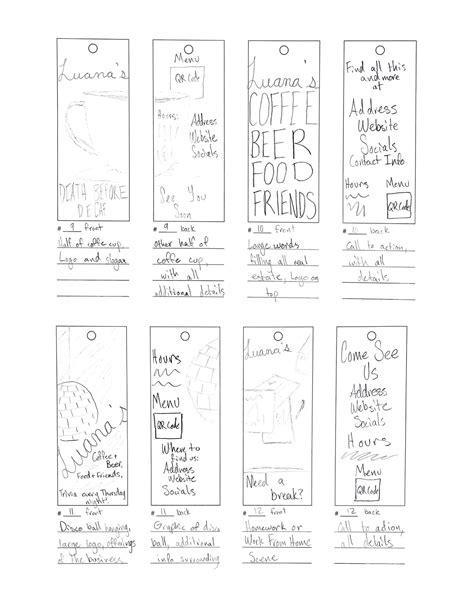 Luana's
DEATH BEFORE
DECAF
# 9 front
Half of coffe cup,
Logo and slogan
Menu
QR Code
Hours:
Address
Website
Socials
See You
Soon
# 9 back
other half of
coffe cup,
with all
additional details
Luana's
COFFEE
BEER
FOOD
FRIENDS
# 10 front
Large words
filling all real
estate, Logo on
top
Find all this
and more
at
Address
Website
Socials
Contact Info
Hours
Menu
QR Code
# 10 back
Call to action,
with all
details
Luana's
Coffee +
Beer,
Food + Friends,
Trivia every Thursday
night.
# 11 front
Disco ball hanging,
large logo, offerings
of The business
Hours
Menu
QR Code
Where to
find us:
Address
Website
Socials
# 11 back
Graphic of disco
ball, additional
info surrounding
Luana's
Need a
break?
# 12 front
Homework or
Work From Home
Scene
Come See
Us
Address
Website
Socials
Hours
Menu
QR Code
# 12 back
Call to action,
all details